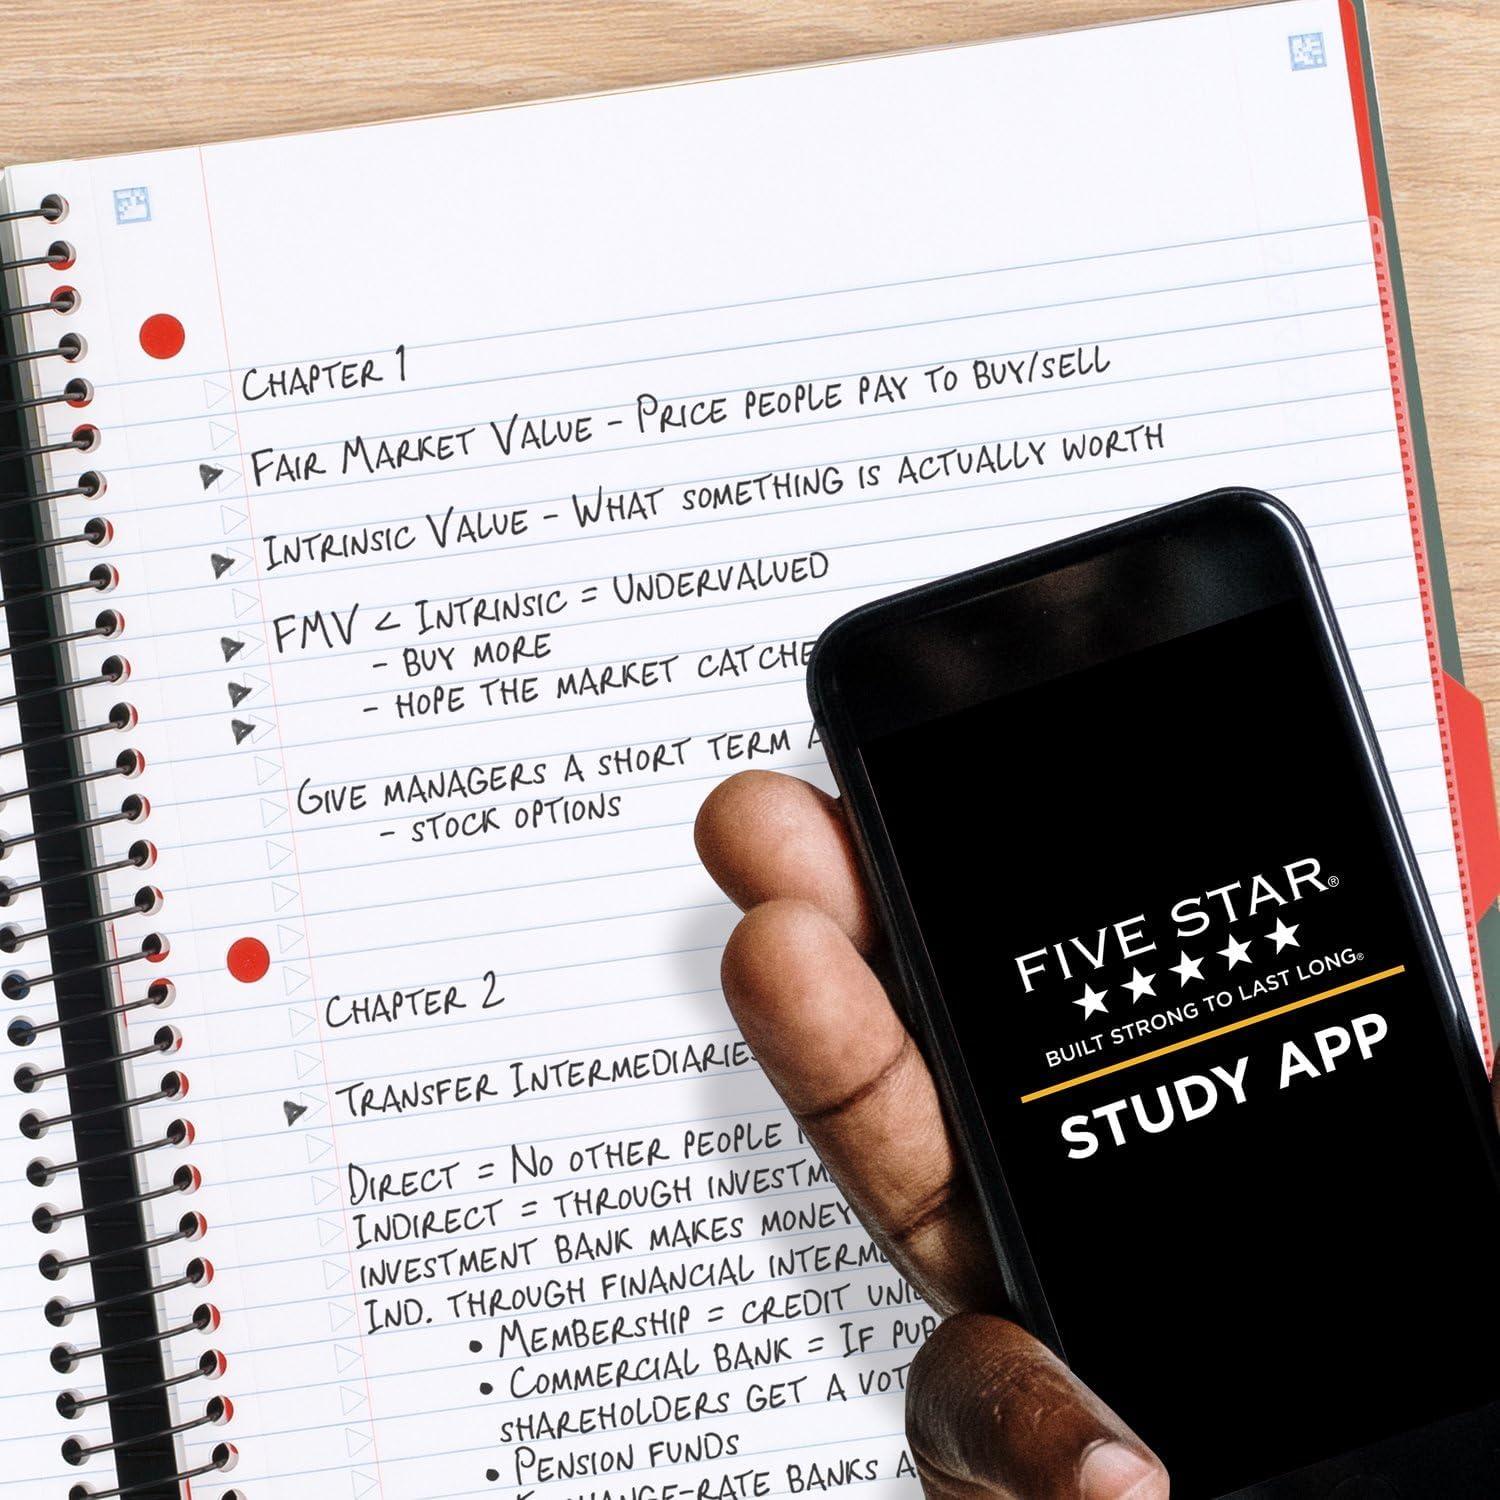 CHAPTER 1
FAIR MARKET VALUE - PRICE PEOPLE PAY TO BUY/SELL
INTRINSIC VALUE - WHAT SOMETHING IS ACTUALLY WORTH
FMV < INTRINSIC = UNDERVALUED
- BUY MORE
- HOPE THE MARKET
GIVE MANAGERS A SHORT TERM
- STOCK OPTIONS
CHAPTER 2
TRANSFER INTERMEDIARIES
DIRECT = NO OTHER PEOPLE
INDIRECT = THROUGH
INVESTMENT BANK MAKES MONEY
IND. THROUGH FINANCIAL
• MEMBERSHIP = CREDIT
• COMMERCIAL BANK = IF
SHAREHOLDERS GET A
• PENSION FUNDS
BANKS
FIVE STAR®
★★★★★
BUILT STRONG TO LAST LONG®
STUDY APP